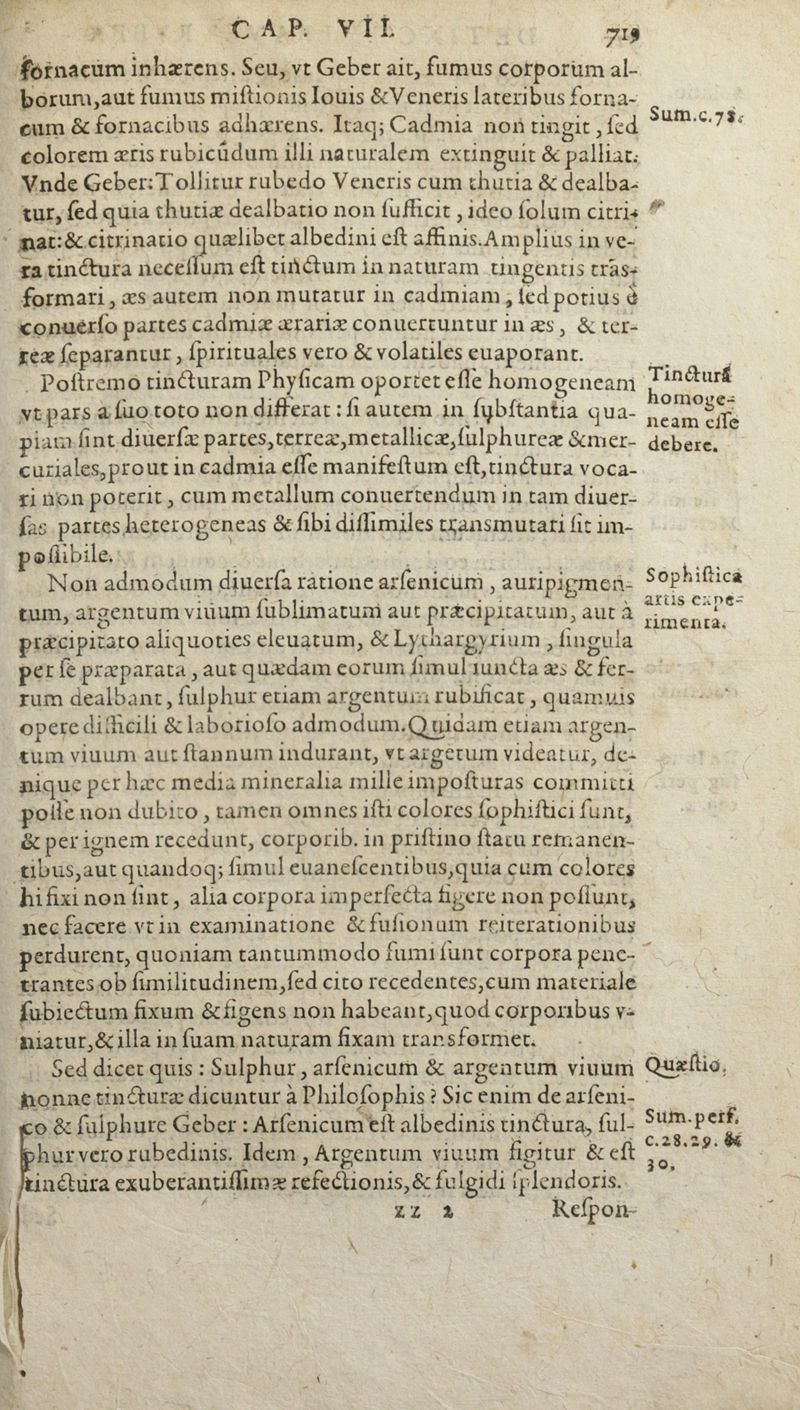 CAP. VII. 719
fornacum inhærens. Seu, vt Geber ait, fumus corporum al-
borum,aut fumus miſtionis Iouis &Veneris lateribus forna-
cum & fornacibus adhærens. Itaq; Cadmia non tingit , ſed
Sum.c.78.
colorem æris rubicúdum illi naturalem extinguit & palliat.
Vnde Geber:Tollitur rubedo Veneris cum thutia & dealba-
tur, ſed quia thutiæ dealbatio non ſufficit , ideo ſolum citri-
nat:& citrinatio quælibet albedini eſt affinis.Amplius in ve-
ra tinctura neceſſum eſt tinctum in naturam tingentis trãs-
formari , æs autem non mutatur in cadmiam , ſed potius è
conuerſo partes cadmiæ ærariæ conuertuntur in æs , & ter-
reæ ſeparantur , ſpirituales vero & volatiles euaporant.
Poſtremo tincturam Phyſicam oportet eſſe homogeneam
vt pars a ſuo toto non differat : ſi autem in ſybſtantia qua-
piam ſint diuerſæ partes,terreæ,metallicæ,ſulphureæ &mer-
curiales,prout in cadmia eſſe manifeſtum eſt,tinctura voca-
ri non poterit , cum metallum conuertendum in tam diuer-
ſas partes heterogeneas & ſibi diſſimiles transmutari ſit im-
poſſibile.
Tincturã
homoge-
neam eſſe
debere.
Non admodum diuerſa ratione arſenicum , auripigmen-
tum, argentum viuum ſublimatum aut præcipitatum, aut à
præcipitato aliquoties eleuatum, & Lythargyrium , ſingula
per ſe præparata , aut quædam eorum ſimul iuncta æs & fer-
rum dealbant, ſulphur etiam argentum rubificat , quamuis
opere difficili & laborioſo admodum.Quidam etiam argen-
tum viuum aut ſtannum indurant, vt argẽtum videatur, de-
nique per hæc media mineralia mille impoſturas committi
poſſe non dubito , tamen omnes iſti colores ſophiſtici ſunt,
& per ignem recedunt, corporib. in priſtino ſtatu remanen-
tibus,aut quandoq; ſimul euaneſcentibus,quia cum colores
hi fixi non ſint , alia corpora imperfecta figere non poſſunt,
nec facere vt in examinatione & fuſionum reiterationibus
perdurent, quoniam tantummodo fumi ſunt corpora pene-
trantes ob ſimilitudinem,ſed cito recedentes,cum materiale
ſubiectum fixum &figens non habeant,quod corporibus v-
niatur,& illa in ſuam naturam fixam transformet.
Sophiſtica
artis expe-
rimenta.
Sed dicet quis : Sulphur , arſenicum & argentum viuum
nonne tincturæ dicuntur à Philoſophis ? Sic enim de arſeni-
co & ſulphure Geber : Arſenicum eſt albedinis tinctura, ſul-
phur vero rubedinis. Idem , Argentum viuum figitur & eſt
tinctura exuberantiſſimæ refectionis,& fulgidi ſplendoris.
Quæſtio.
Sum.perf.
c.28.29. &
30.
zz 2 Reſpon-